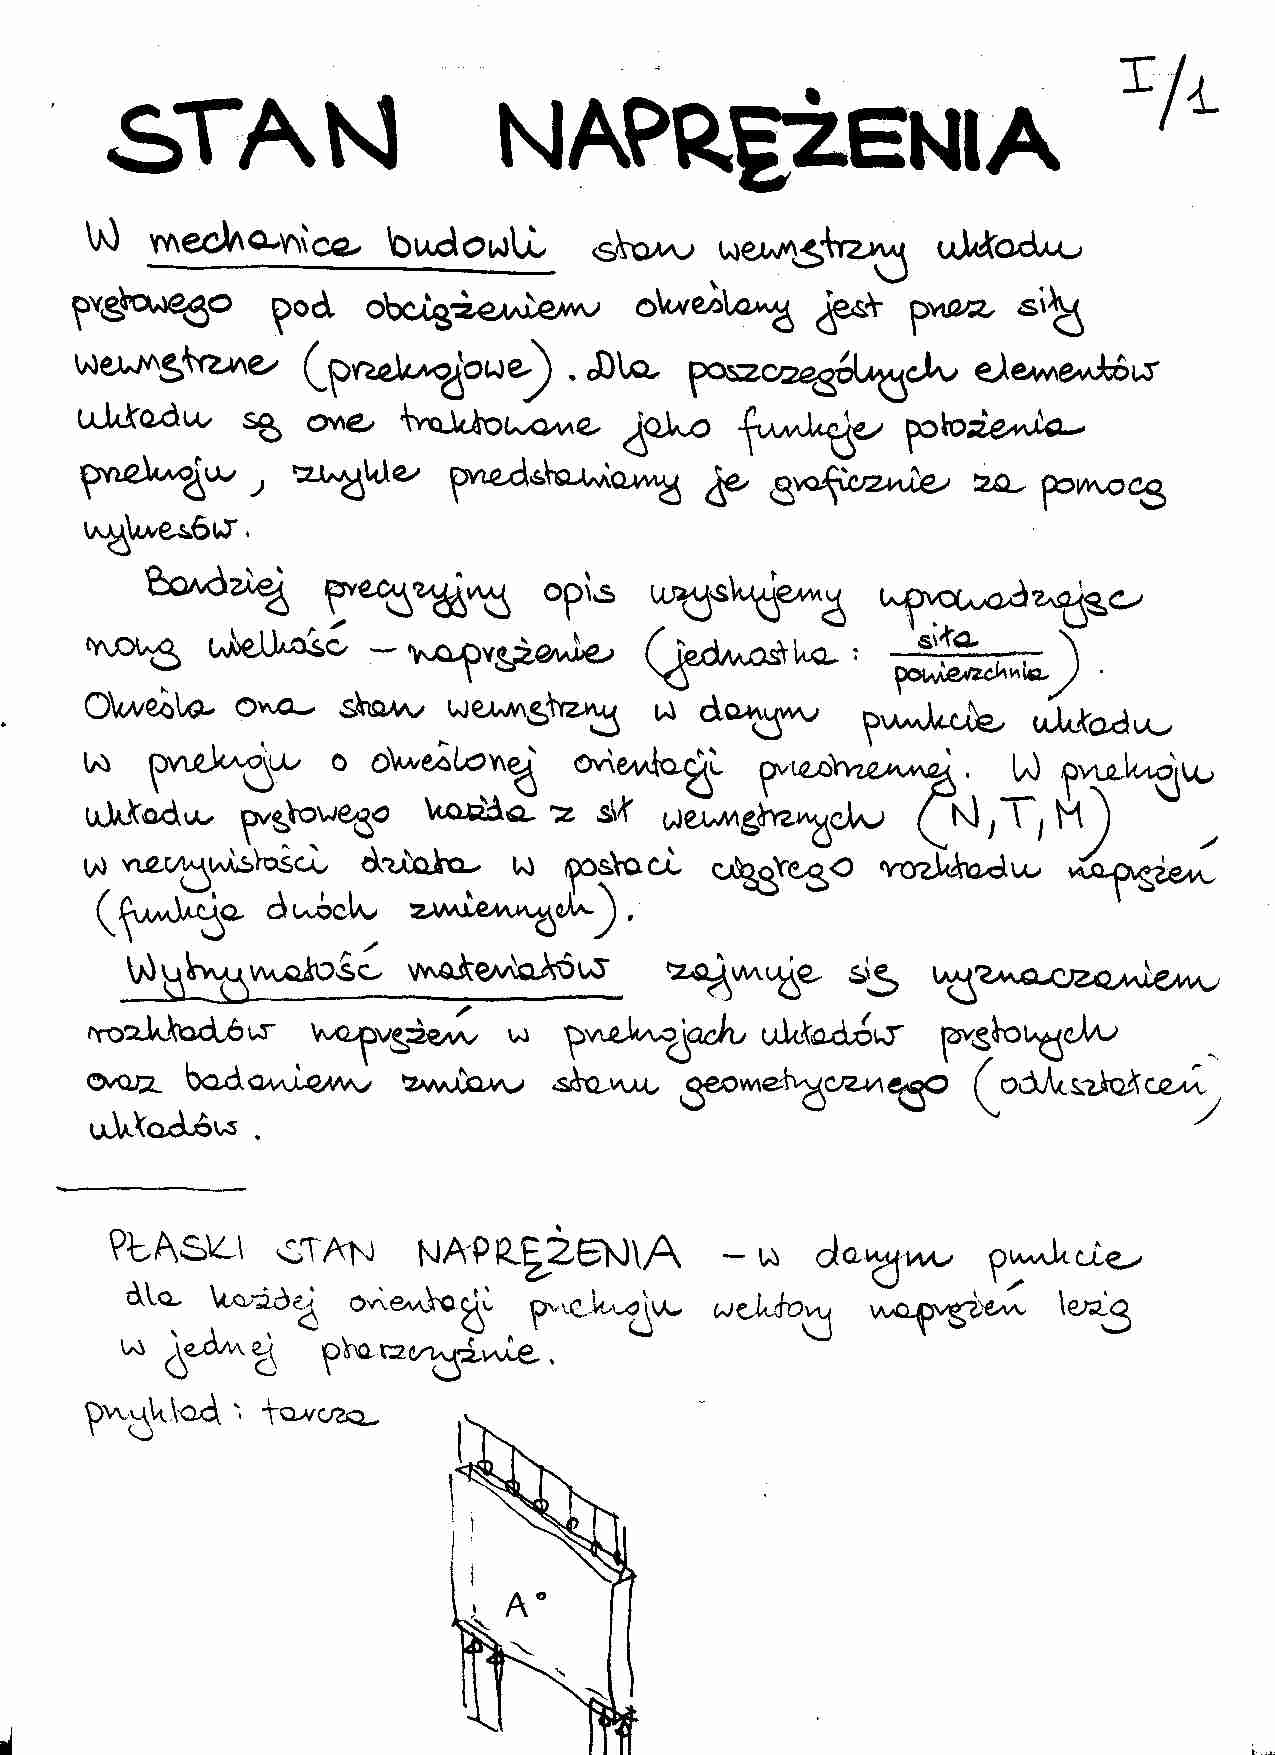 I/1
STAN NAPRĘŻENIA
W mechanice budowli stan wewnętrzny układu
prętowego pod obciążeniem określany jest przez siły
wewnętrzne (przekrojowe). Dla poszczególnych elementów
układu są one traktowane jako funkcje położenia
przekroju, zwykle przedstawiamy je graficznie za pomocą
wykresów.
Bardziej precyzyjny opis uzyskujemy wprowadzając
nową wielkość – naprężenie (jednostka: siła / powierzchnia).
Określa ona stan wewnętrzny w danym punkcie układu
w przekroju o określonej orientacji przestrzennej. W przekroju
układu prętowego każda z sił wewnętrznych (N, T, M)
w rzeczywistości działa w postaci ciągłego rozkładu naprężeń
(funkcja dwóch zmiennych).
Wytrzymałość materiałów zajmuje się wyznaczaniem
rozkładów naprężeń w przekrojach układów prętowych
oraz badaniem zmian stanu geometrycznego (odkształceń)
układów.
PŁASKI STAN NAPRĘŻENIA – w danym punkcie
dla każdej orientacji przekroju wektory naprężeń leżą
w jednej płaszczyźnie.
przykład: tarcza
A